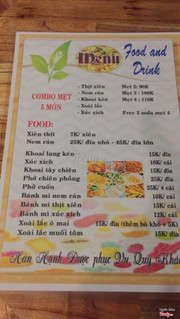 Menu
Food and
Drink
COMBO MẸT
5 MÓN
- Thịt xiên
- Nem rán
- Khoai lang kén
- Xoài lắc
- Xúc xích
Mẹt 2: 90K
Mẹt 3 : 100K
Mẹt 4 : 110K
Free 2 soda mẹt 4
FOOD:
- Xiên thịt 7K/ xiên
- Nem rán 25K/ đĩa nhỏ - 45K/ đĩa lớn
- Khoai lang kén 15K/ đĩa
- Xúc xích 10K/ cái
- Khoai tây chiên 15K/ đĩa
- Phở chiên phồng 35K/ đĩa
- Phở cuốn 25K/ 4 cái
- Bánh mì nem rán 10K/ cái
- Bánh mì thịt xiên 12K/ cái
- Bánh mì xúc xích 12K/ cái
- Xoài lắc ô mai 15K/ đĩa (thêm bò khô + 5K)
- Xoài lắc muối tôm 15K/ đĩa
Hân Hạnh Được phục Vụ Quý Khá